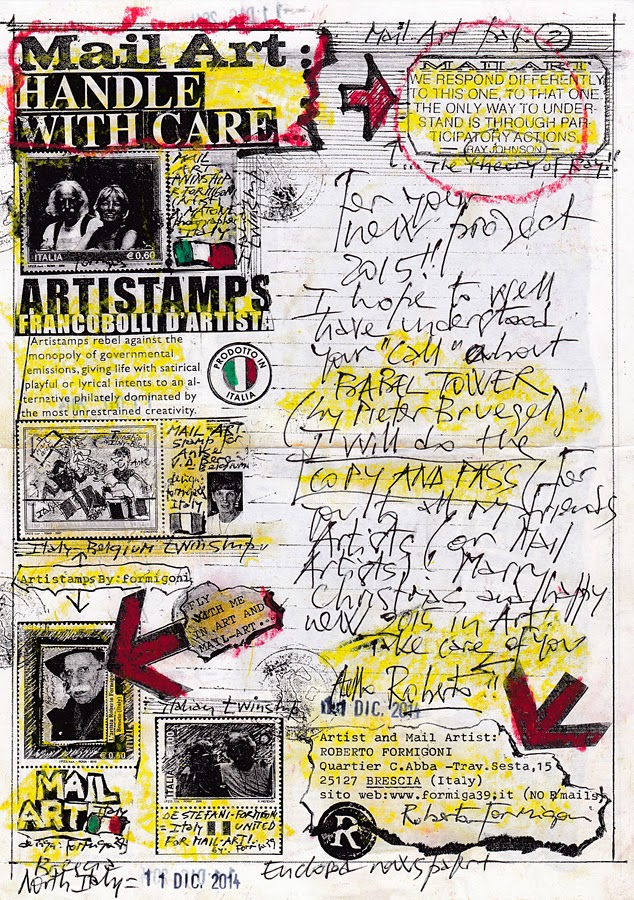 Mail Art page 2
Mail Art:
HANDLE
WITH CARE
MAIL-ART
WE RESPOND DIFFERENTLY
TO THIS ONE, TO THAT ONE
THE ONLY WAY TO UNDER-
STAND IS THROUGH PAR-
TICIPATORY ACTIONS.
RAY JOHNSON
The Theory of Ray!!
ITALIA €0.60
ARTISTAMPS
FRANCOBOLLI D'ARTISTA
Artistamps rebel against the
monopoly of governmental
emissions, giving life with satirical
playful or lyrical intents to an al-
ternative philately dominated by
the most unrestrained creativity.
PRODOTTO IN
ITALIA
MAIL-ART
stamp for
Anke
Belgium
design:
formigoni
Italy
Italy-Belgium twinship
Artistamps By: formigoni
FLY
WITH ME
IN ART AND
MAIL-ART..
€0.60
MAIL
ART
Italy
Brescia
North Italy=
11 DIC. 2014
Italian twinship
ITALIA
DE STEFANI-FORMIGONI
=ITALY UNITED
FOR MAIL-ART!
For your
new project
2015!!
I hope to well
have understood
your "call" about
BABEL TOWER
(by Pieter Bruegel)!
I will do the
COPY AND PASS (for
you to all my friends
Artists (or Mail
Artists)! Marry
Christmas and happy
new 2015 in Art
Take care of you
Roberto!!
11 DIC. 2014
Artist and Mail Artist:
ROBERTO FORMIGONI
Quartier C.Abba -Trav.Sesta,15
25127 BRESCIA (Italy)
sito web:www.formiga39.it (NO E-mails)
Roberto Formigoni
R
Enclosed newspapert